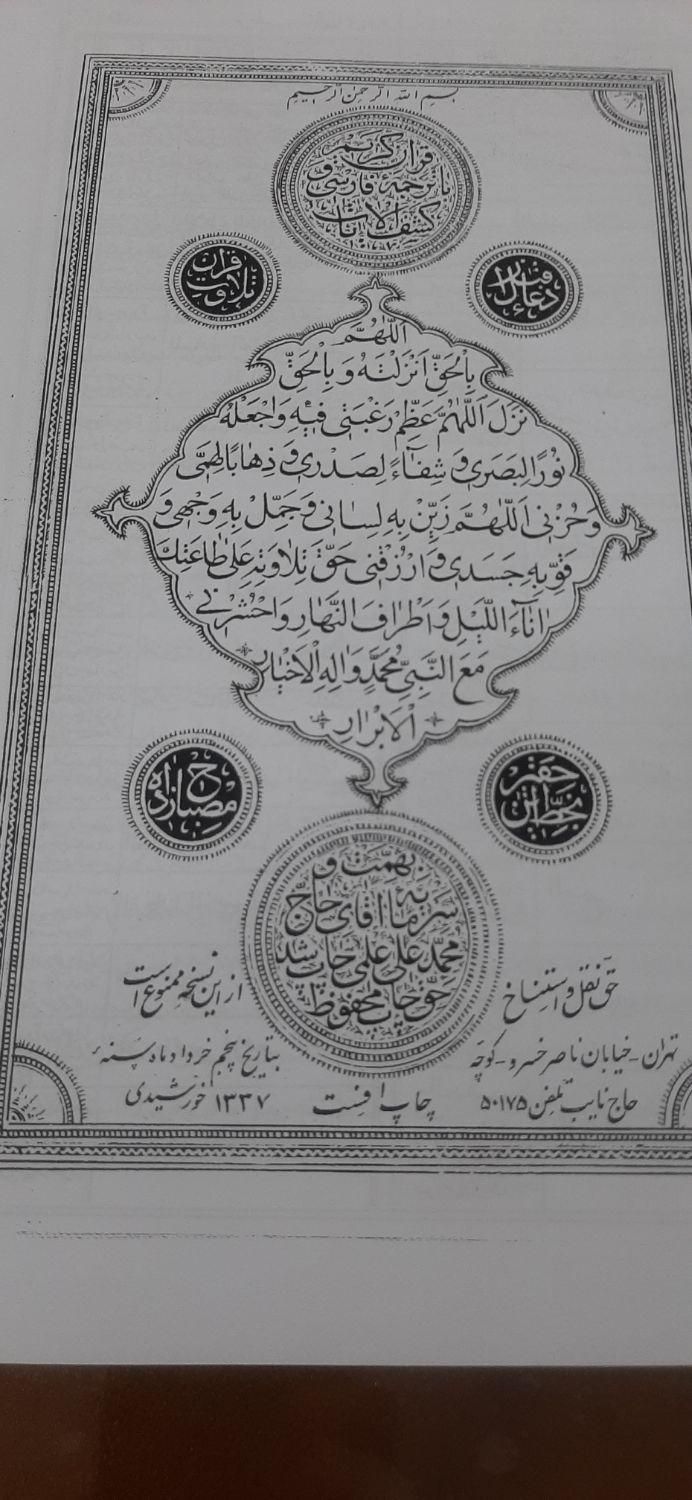 بسم الله الرحمن الرحیم
قرآن کریم
با ترجمهٔ فارسی و
کشف الآیات
دعای
قرآن
تلاوت
اللّٰهُمَّ
بِالْحَقِّ اَنْزَلْتَهُ وَ بِالْحَقِّ
نَزَلَ اَللّٰهُمَّ عَظِّمْ رَغْبَتی فیهِ وَاجْعَلْهُ
نُورًا لِبَصَری وَ شِفٰآءً لِصَدْری وَ ذِهٰابًا لِهَمّی
وَ حُزْنی اَللّٰهُمَّ زَیِّنْ بِهِ لِسٰانی وَ جَمِّلْ بِهِ وَجْهی وَ
قَوِّ بِهِ جَسَدی وَ ارْزُقْنی حَقَّ تِلاوَتِهِ عَلیٰ طٰاعَتِكَ
اٰنٰآءَ اللَّیْلِ وَ اَطْرٰافَ النَّهٰارِ وَ احْشُرْنی
مَعَ النَّبِیِّ مُحَمَّدٍ وَ اٰلِهِ الْاَخْیٰارِ
الْاَبْرٰارِ
بخط
حقیر
مصباح زاده
بهمت و
سرمایه آقای حاج
محمد علی علمی چاپ شد
حق چاپ محفوظ
حق نقل و استنساخ از این نسخه ممنوع است
تهران - خیابان ناصر خسرو - کوچه
حاج نایب تلفن ۵۰۱۷۵
چاپ افست
بتاریخ پنجم خرداد ماه سنه
۱۳۳۷ خورشیدی